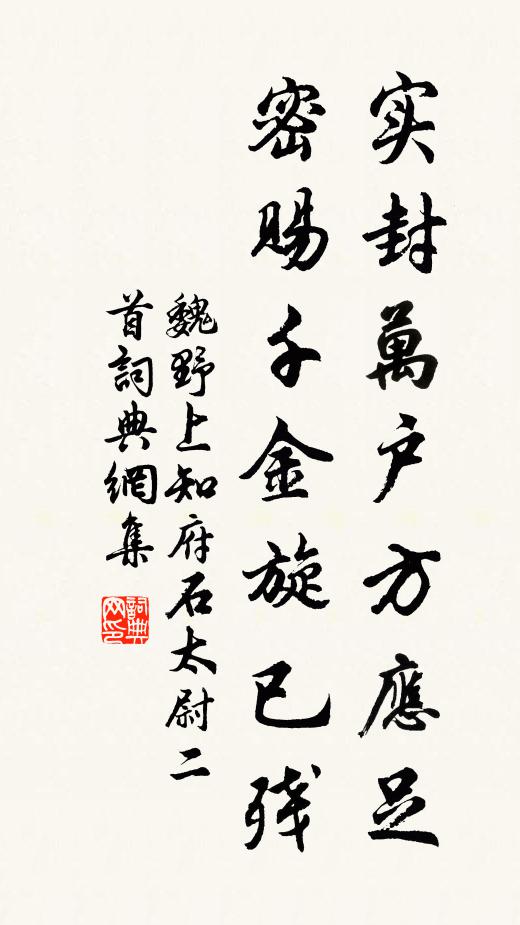 实封萬户方應足
密賜千金旋已残
魏野上知府石太尉二
首詞典網集
詞典
网印